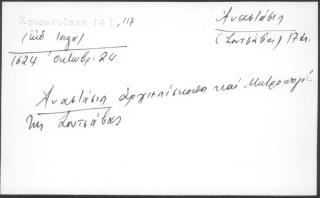 Χουρμουζάκη 14 I, 117
(ἀπὸ Ἰάσι)
1624 Ὀκτωβρ. 24
Ἀναστάσιος
(Σουτσάβας) 17 αι.
Ἀναστάσιος ἀρχιεπίσκοπο καὶ Μητροπολί-
της Σουτσάβας